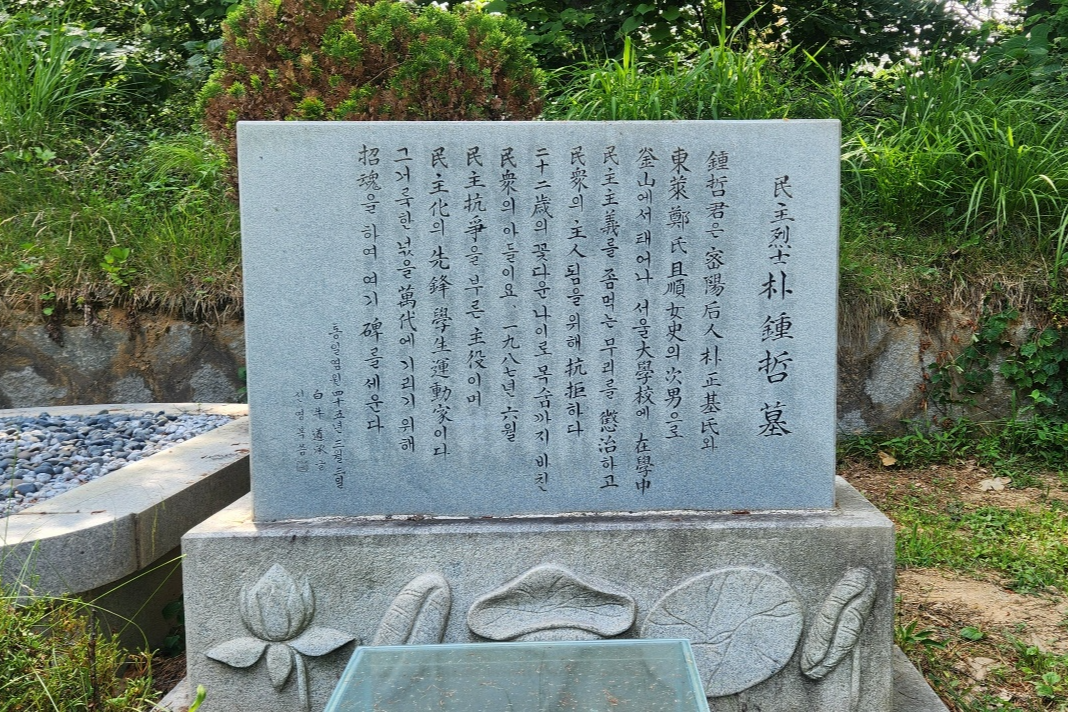 民主烈士 朴鍾哲 墓
鍾哲君은 密陽后人 朴正基氏와
東萊 鄭氏 且順女史의 次男으로
釜山에서 태어나 서울大學校에 在學中
民主主義를 좀먹는 무리를 懲治하고
民衆의 主人됨을 위해 抗拒하다
二十二歲의 꽃다운 나이로 목숨까지 바친
民衆의 아들이요. 一九八七년 六월
民主抗爭을 부른 主役이며
民主化의 先鋒 學生運動家이다
그 거룩한 넋을 萬代에 기리기 위해
招魂을 하여 여기 碑를 세운다
통일염원 四十五년 三월 三일